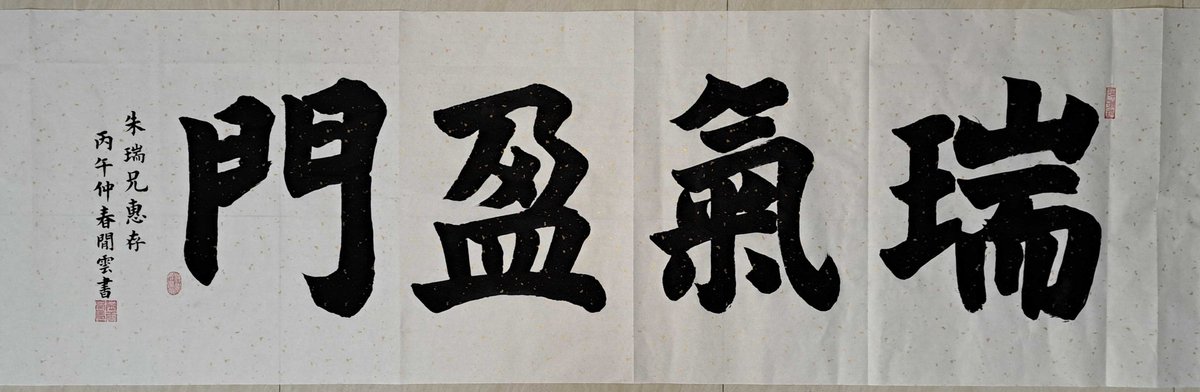 瑞氣盈門
朱瑞兄惠存
丙午仲春閒雲書